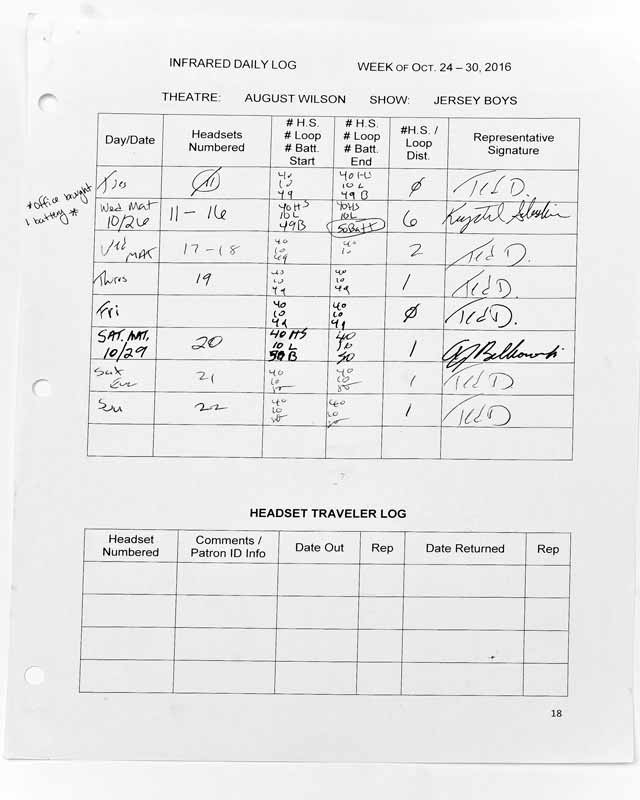 INFRARED DAILY LOG WEEK OF OCT. 24 – 30, 2016
THEATRE: AUGUST WILSON SHOW: JERSEY BOYS
Day/Date
Headsets
Numbered
# H.S.
# Loop
# Batt.
Start
# H.S.
# Loop
# Batt.
End
#H.S. /
Loop
Dist.
Representative
Signature
*Office bought
1 battery *
Tues
11
40
10
49
40 HS
10 L
49 B
Ø
Ted D.
Wed Mat
10/26
11 - 16
40HS
10L
49B
40HS
10L
50Batt
6
Krystal
Wed
MAT
17 - 18
40
10
49
40
10
2
Ted D.
Thurs
19
40
10
49
40
10
49
1
Ted D.
Fri
40
10
49
40
10
49
Ø
Ted D.
SAT. MAT.
10/29
20
40 HS
10 L
50 B
40
10
50
1
Sat
Eve
21
40
10
50
40
10
50
1
Ted D
Sun
22
40
10
50
40
10
50
1
Ted D
HEADSET TRAVELER LOG
Headset
Numbered
Comments /
Patron ID Info
Date Out
Rep
Date Returned
Rep
18